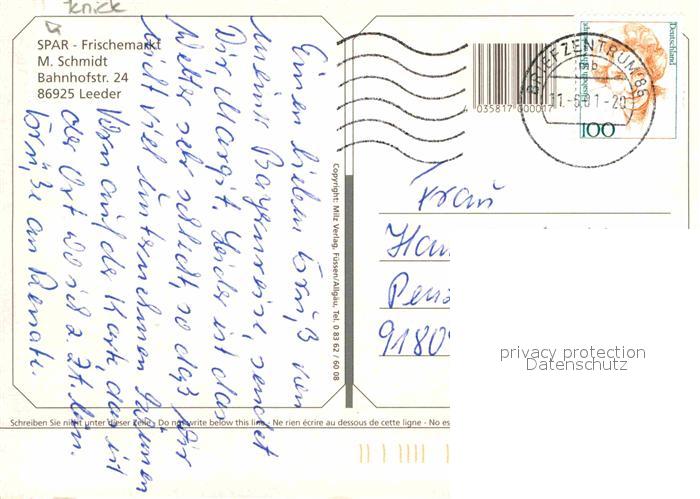 knick
SPAR - Frischemarkt
M. Schmidt
Bahnhofstr. 24
86925 Leeder
Einen lieben Gruß von
meiner Bayernreise, sendet
Dir, Margit. Leider ist das
Wetter sehr schlecht, so daß wir
nicht viel unternehmen können
Vorn auf der Karte, das ist
der Ort wo ich z. Zt. bin.
Grüße an Renate.
Copyright: Milz Verlag, Füssen/Allgäu, Tel. 0 83 62 / 60 08
4 035817 000017
BRIEFZENTRUM 86
mb
11.-6.01.-20
Deutschland
100
Frau
91804
privacy protection
Datenschutz
Schreiben Sie nicht unter dieser Zeile - Do not write below this line - Ne rien écrire au dessous de cette ligne - No es